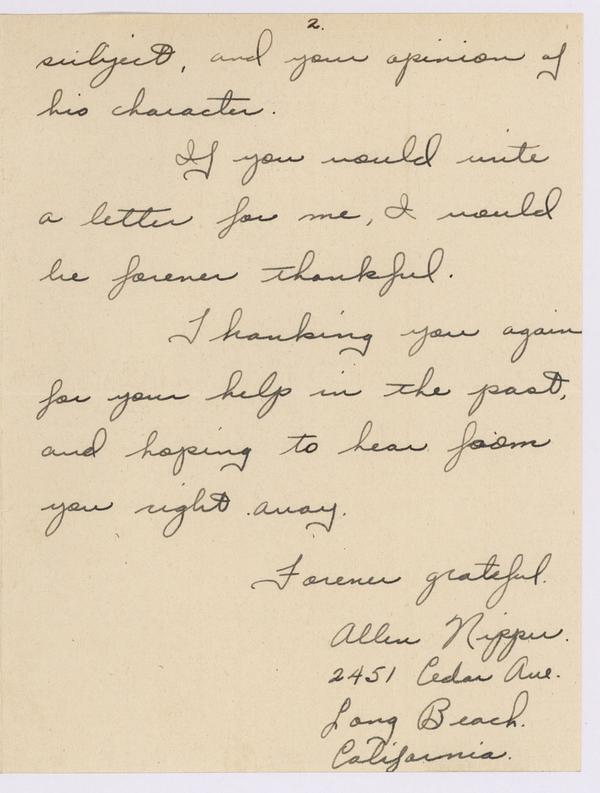 2.
subject, and your opinion of
his character.
If you would write
a letter for me, I would
be forever thankful.
Thanking you again
for your help in the past,
and hoping to hear from
you right away.
Forever grateful.
Allen Nipper.
2451 Cedar Ave.
Long Beach.
California.